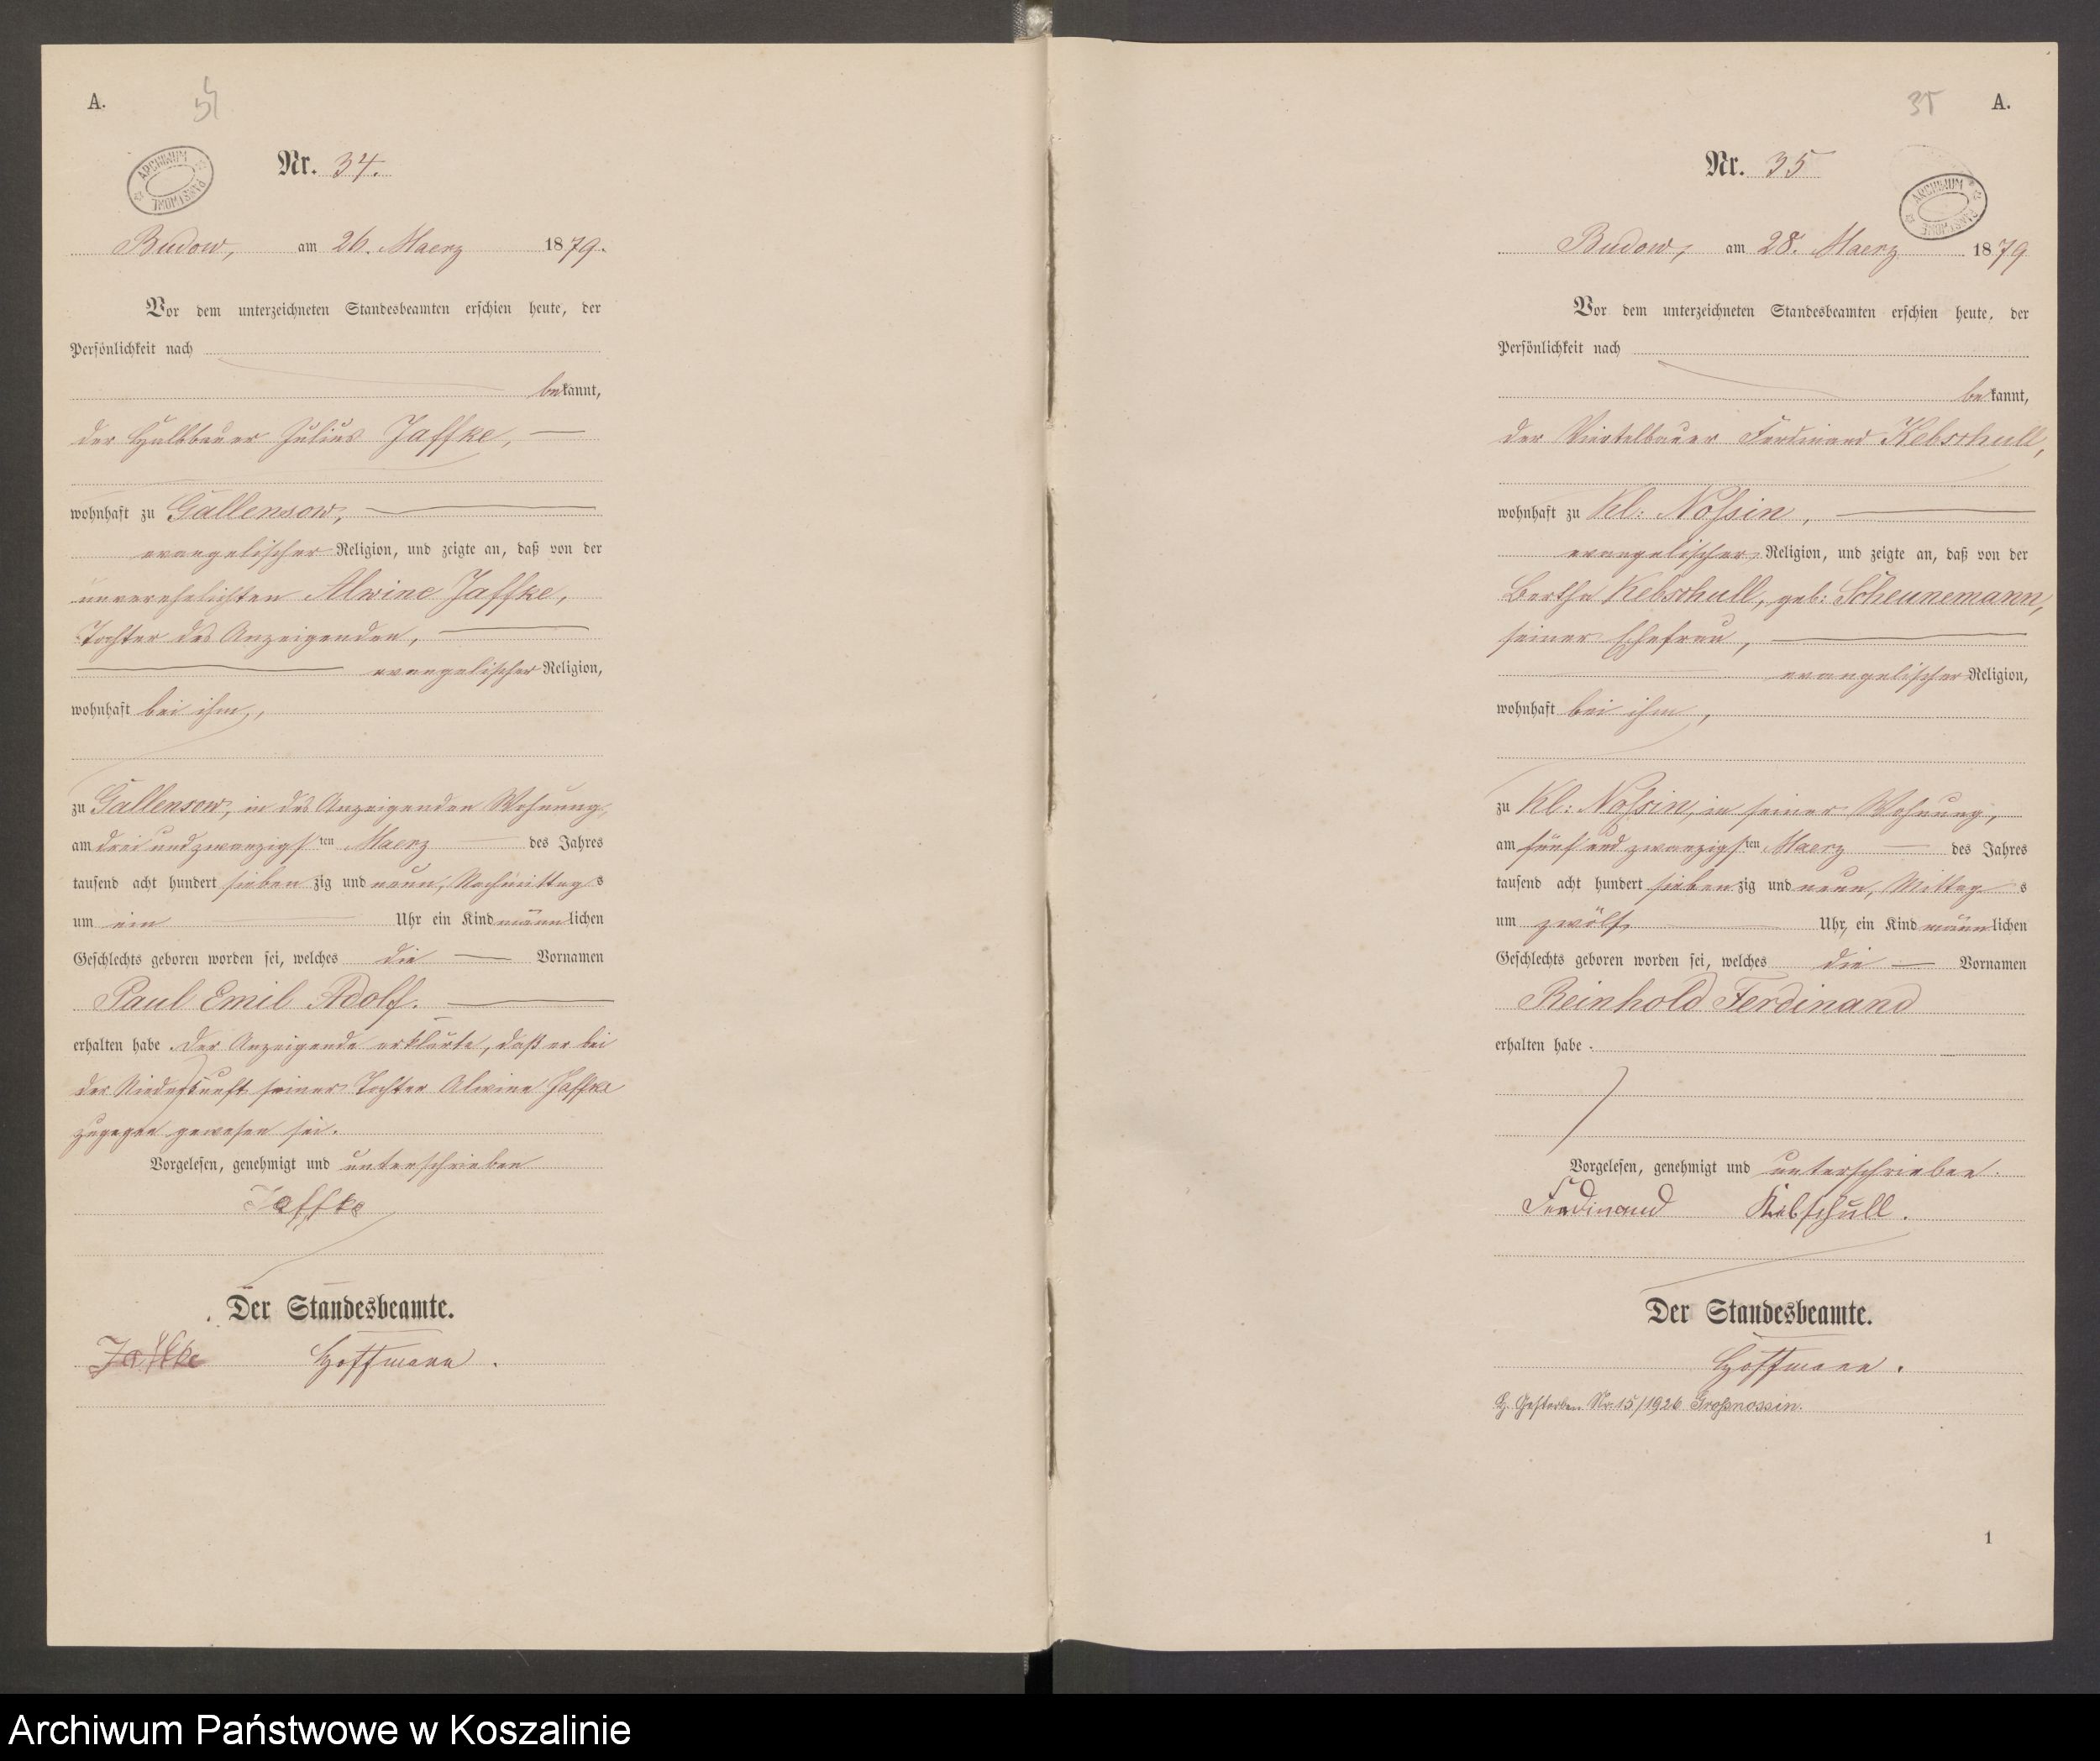 A.
34
ARCHIWUM PAŃSTWOWE
Nr. 34.
Budow, am 26. Maerz 1879.
Vor dem unterzeichneten Standesbeamten erschien heute, der
Persönlichkeit nach
bekannt,
der Halbbauer Julius Jaffke,
wohnhaft zu Gallensow,
evangelischer Religion, und zeigte an, daß von der
unverehelichten Alwine Jaffke,
Tochter des Anzeigenden,
evangelischer Religion,
wohnhaft bei ihm,
zu Gallensow, in des Anzeigenden Wohnung,
am drei und zwanzigsten Maerz des Jahres
tausend acht hundert siebenzig und neun, Nachmittags
um ein Uhr ein Kind männlichen
Geschlechts geboren worden sei, welches die Vornamen
Paul Emil Adolf.
erhalten habe. Der Anzeigende erklärte, daß er bei
der Niederkunft seiner Tochter Alwine Jaffke
zugegen gewesen sei.
Vorgelesen, genehmigt und unterschrieben
Jaffke
Der Standesbeamte.
Jaffke Hoffmann.
35 A.
ARCHIWUM PAŃSTWOWE
Nr. 35
Budow, am 28. Maerz 1879
Vor dem unterzeichneten Standesbeamten erschien heute, der
Persönlichkeit nach
bekannt,
der Viertelbauer Ferdinand Kebschull,
wohnhaft zu Kl: Nossin,
evangelischer Religion, und zeigte an, daß von der
Bertha Kebschull, geb: Scheunemann,
seiner Ehefrau,
evangelischer Religion,
wohnhaft bei ihm,
zu Kl: Nossin, in seiner Wohnung,
am fünf und zwanzigsten Maerz des Jahres
tausend acht hundert siebenzig und neun, Mittags
um zwölf Uhr, ein Kind männlichen
Geschlechts geboren worden sei, welches die Vornamen
Reinhold Ferdinand
erhalten habe.
Vorgelesen, genehmigt und unterschrieben.
Ferdinand Kebschull.
Der Standesbeamte.
Hoffmann.
Gestorben Nr. 15/1926 Großnossin.
1
Archiwum Państwowe w Koszalinie